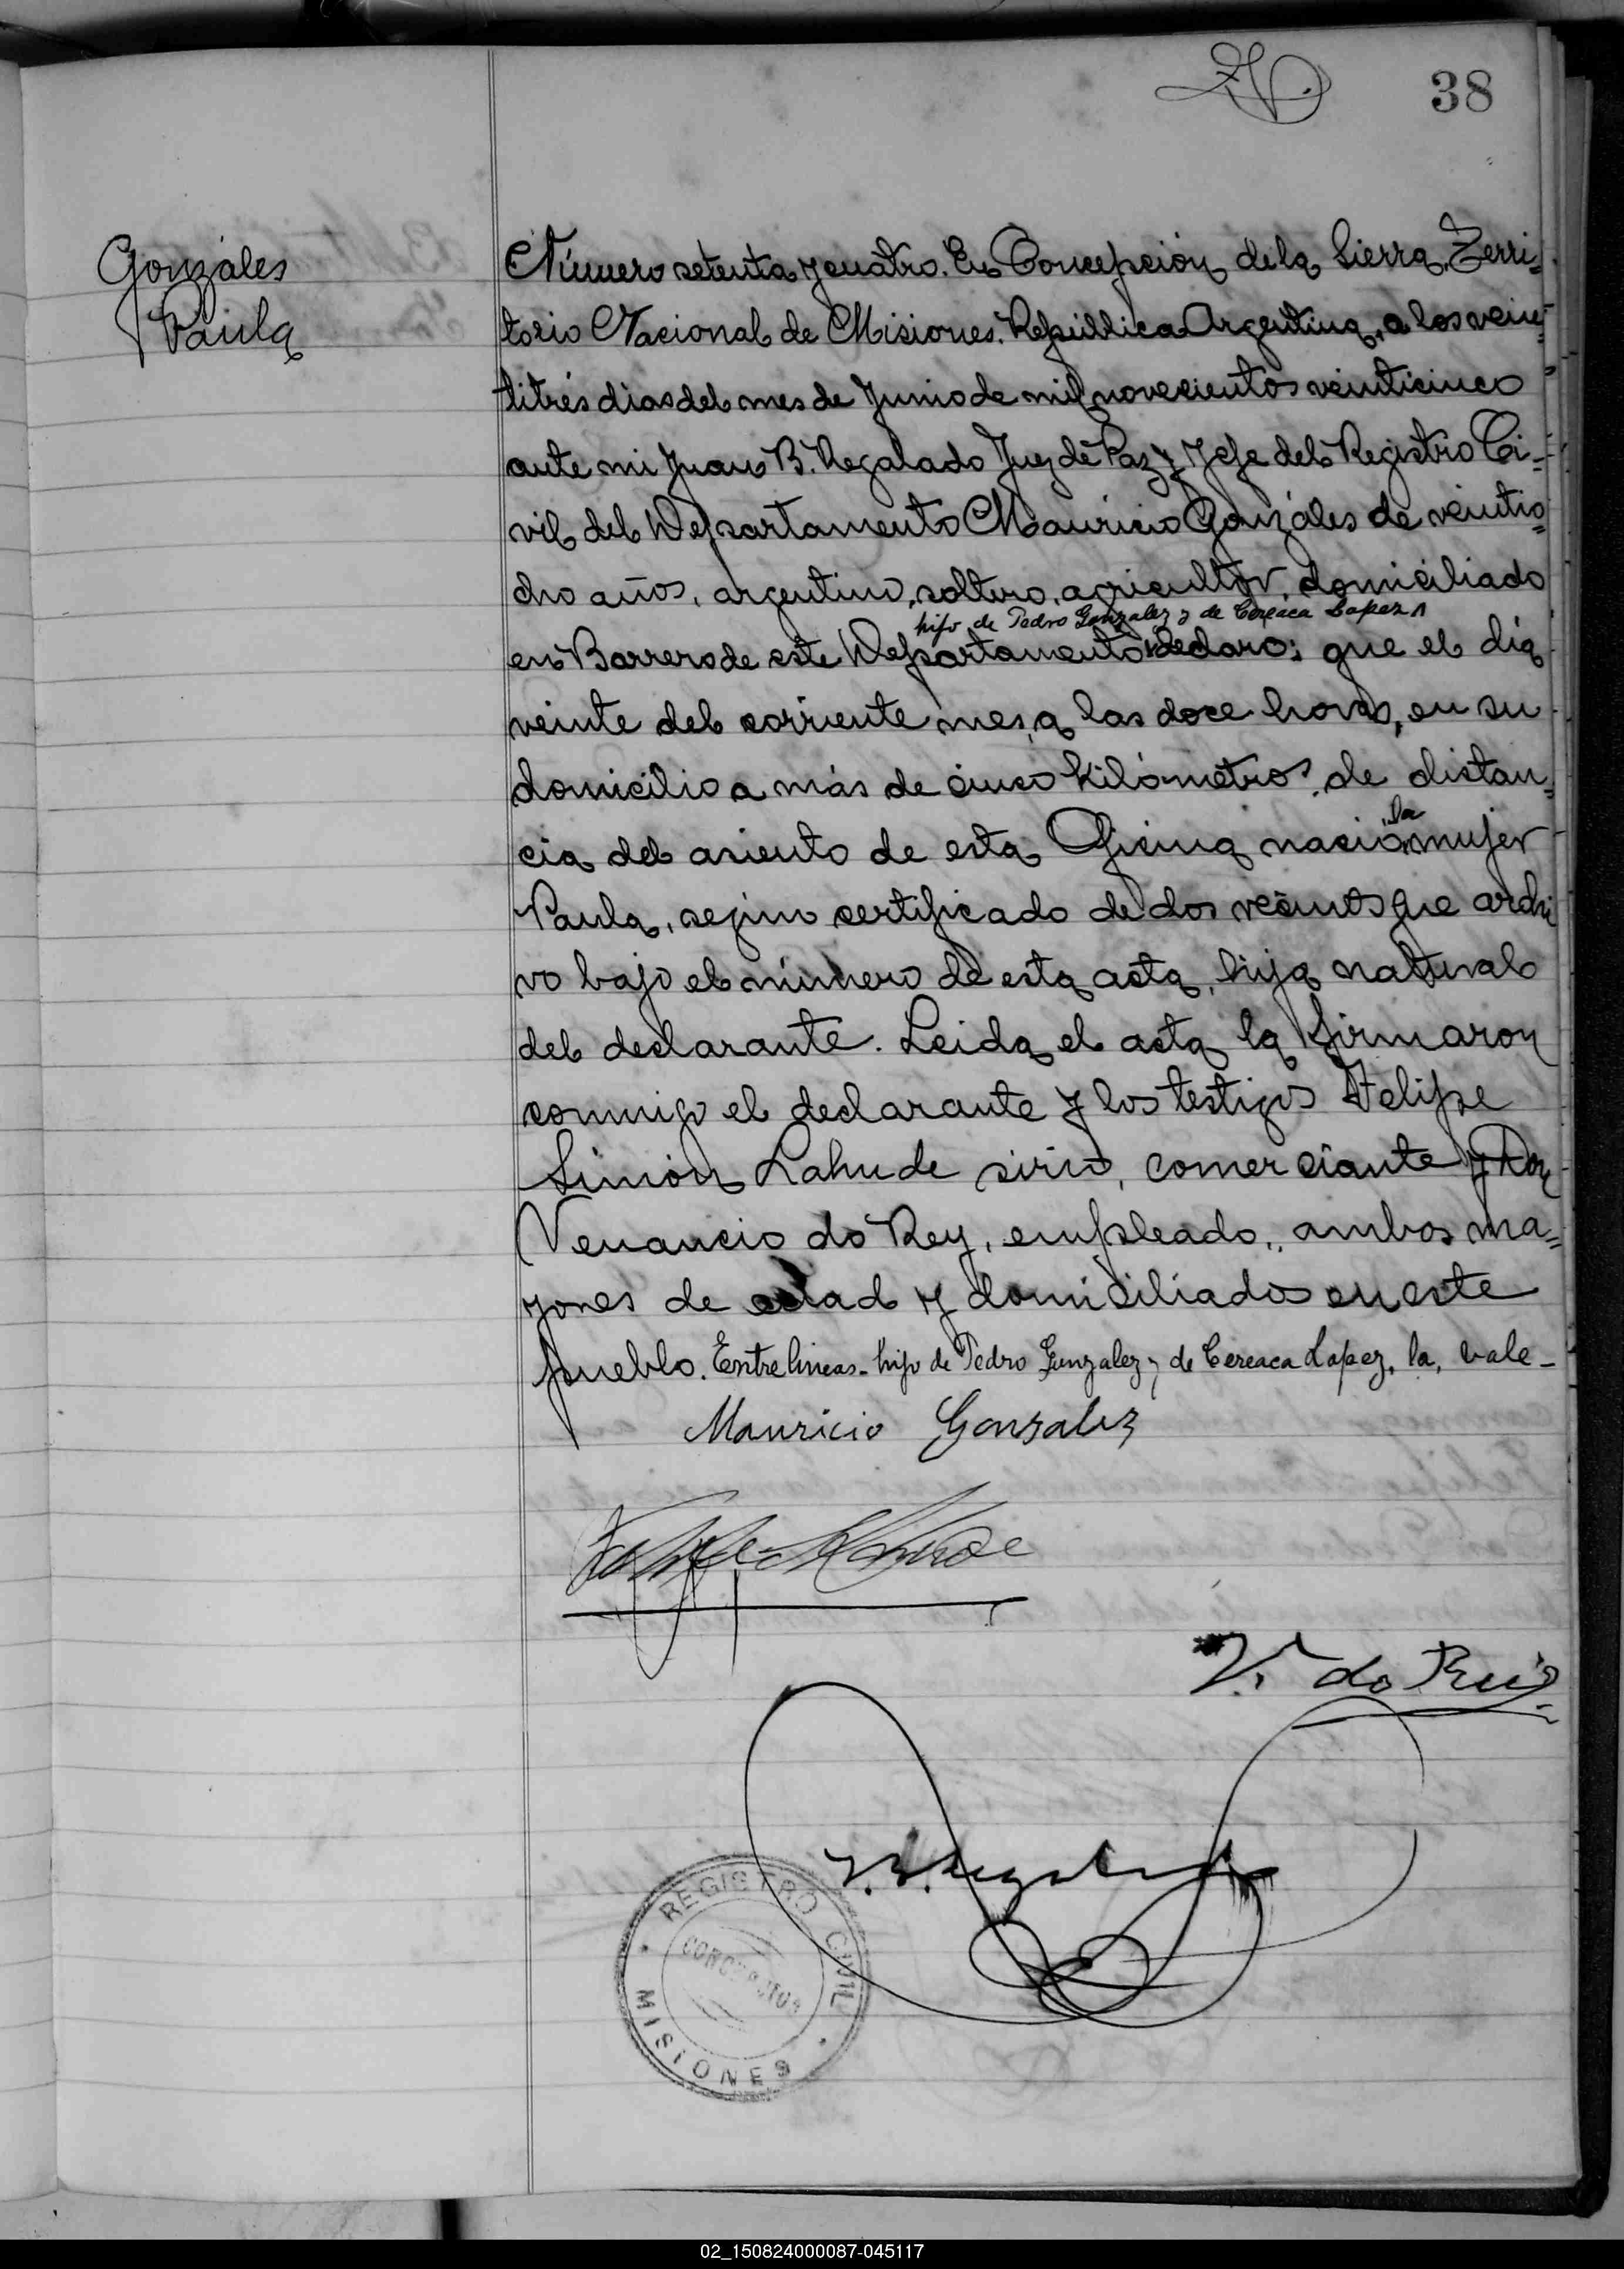 38
Gonzáles
Paula
Número setenta y cuatro. En Concepción de la Sierra, Terri=
torio Nacional de Misiones. República Argentina, a los vein=
titrés dias del mes de Junio de mil novecientos veinticinco
ante mi Juan B. Regalado Juez de Paz y Jefe del Registro Ci=
vil del Departamento Mauricio Gonzáles de veintio=
cho años, argentino, soltero, agricultor, domiciliado
hijo de Pedro Gonzalez y de Cereaca Lopez
en Barrero de este Departamento declaro: que el dia
veinte del corriente mes, a las doce horas, en su
domicilio a más de cinco kilómetros de distan=
cia del asiento de esta Oficina nació la mujer
Paula, segun certificado de dos vecinos que archi
vo bajo el número de esta acta, hija natural
del declarante. Leida el acta la firmaron
conmigo el declarante y los testigos Felipe
Simón Lahude sirio, comerciante y Don
Venancio do Rey, empleado, ambos ma=
yores de edad y domiciliados en este
pueblo. Entre lineas - hijo de Pedro Gonzalez y de Cereaca Lopez, la, vale -
Mauricio Gonzalez
V. do Rey
J. B. Regalado
REGISTRO CIVIL
MISIONES
02_150824000087-045117